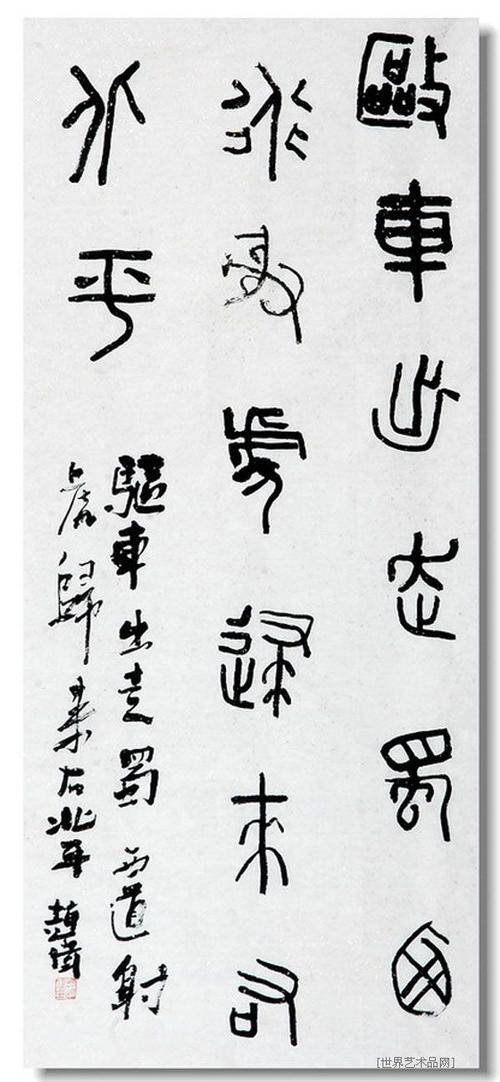 敺車出走蜀西
道射虎歸來右
北平
驅車出走蜀西道射
虎歸來右北平 趙偉
[世界艺术品网]